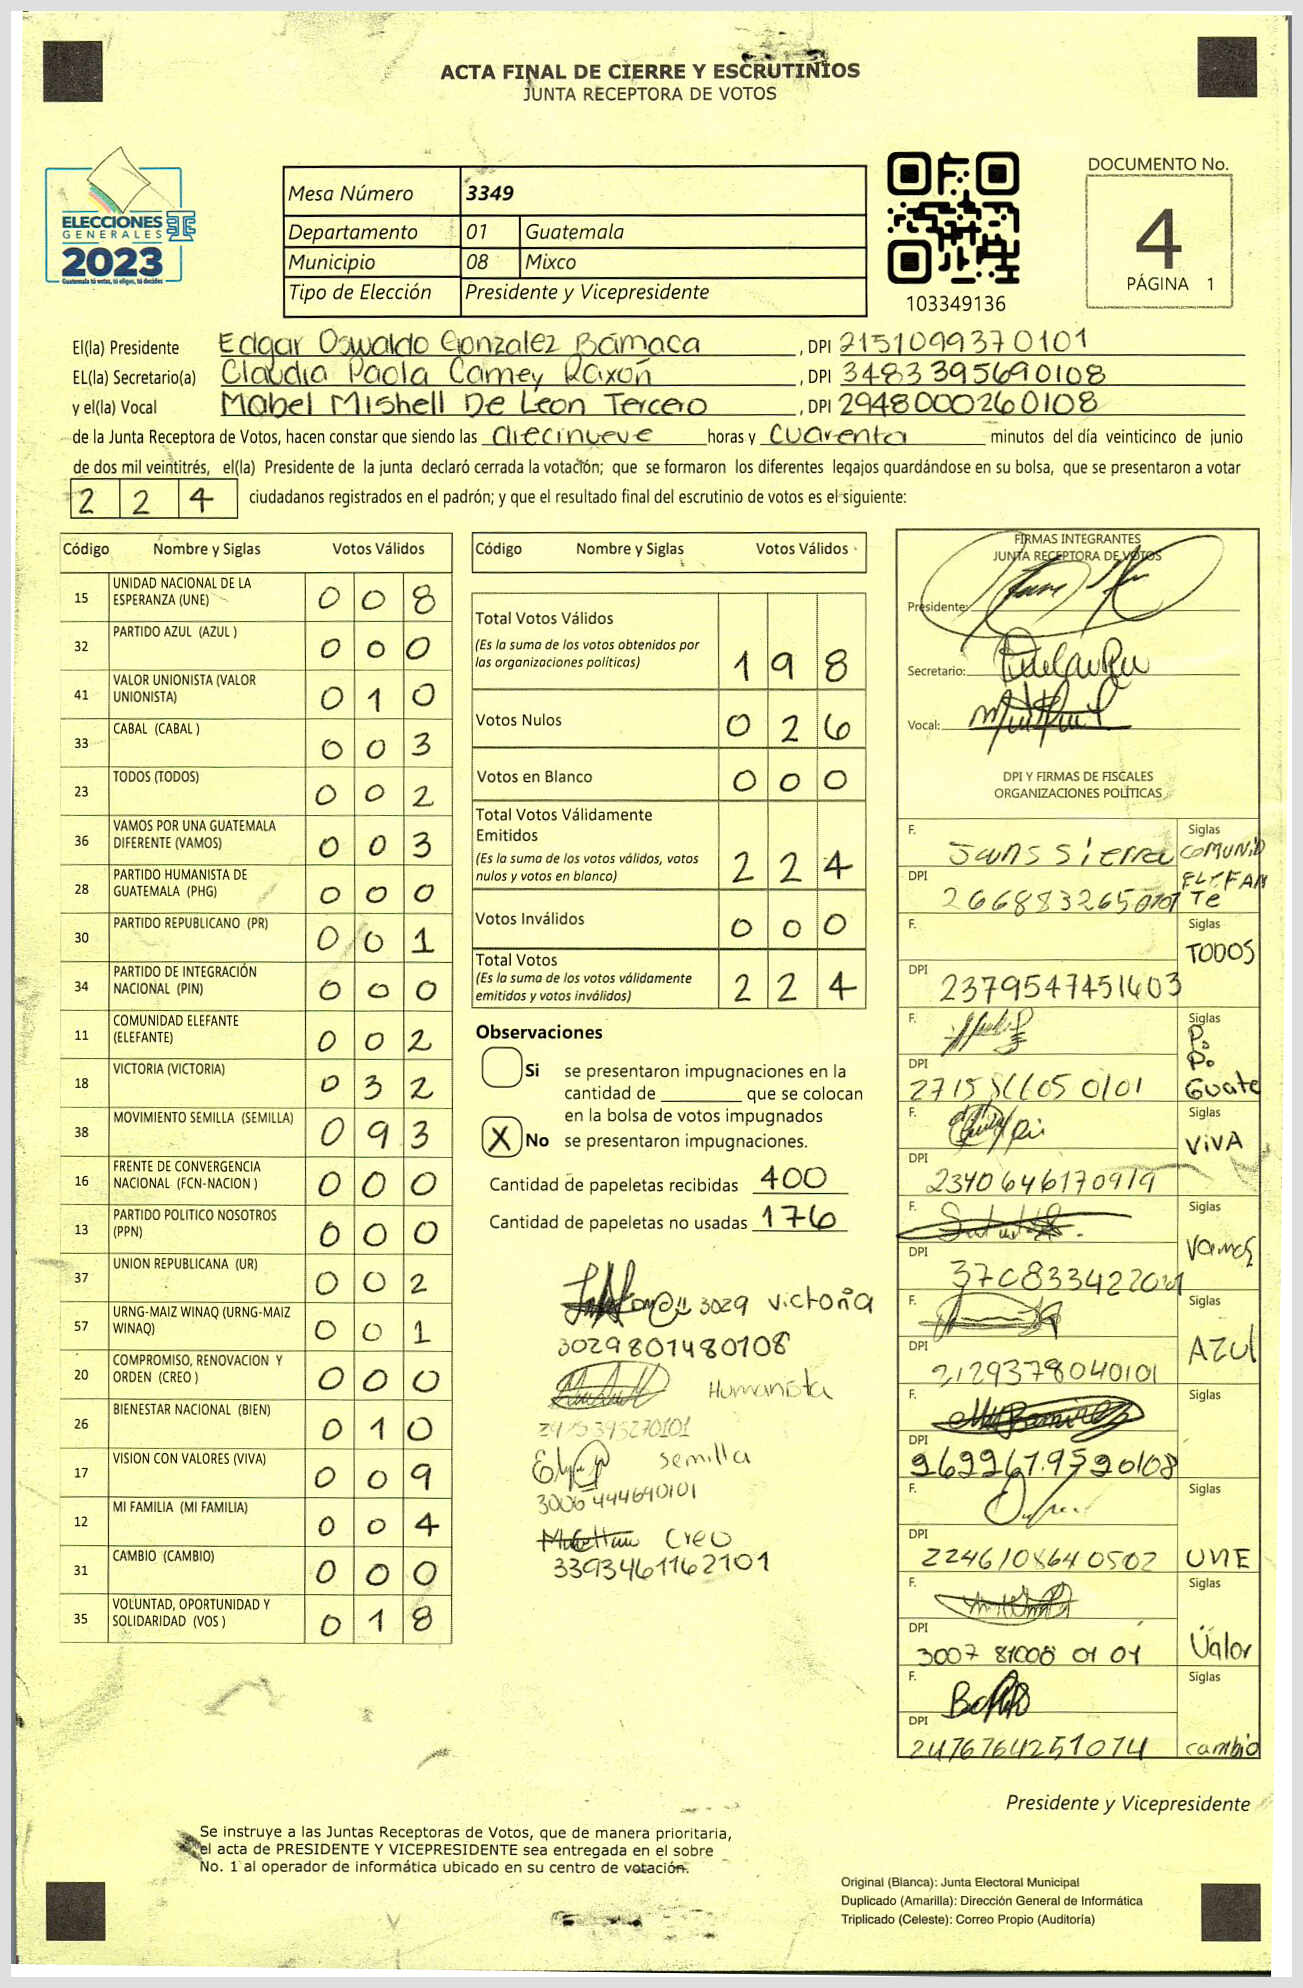 ACTA FINAL DE CIERRE Y ESCRUTINIOS
JUNTA RECEPTORA DE VOTOS
ELECCIONES
GENERALES
2023
Guatemala tú votas, tú eliges, tú decides
Mesa Número 3349
Departamento 01 Guatemala
Municipio 08 Mixco
Tipo de Elección Presidente y Vicepresidente
103349136
DOCUMENTO No.
4
PÁGINA 1
El(la) Presidente Edgar Oswaldo Gonzalez Bámaca , DPI 2151099370101
EL(la) Secretario(a) Claudia Paola Camey Raxón , DPI 3483395690108
y el(la) Vocal Mabel Mishell De León Tercero , DPI 2948000260108
de la Junta Receptora de Votos, hacen constar que siendo las diecinueve horas y cuarenta minutos del día veinticinco de junio
de dos mil veintitrés, el(la) Presidente de la junta declaró cerrada la votación; que se formaron los diferentes legajos guardándose en su bolsa, que se presentaron a votar
2 2 4 ciudadanos registrados en el padrón; y que el resultado final del escrutinio de votos es el siguiente:
Código Nombre y Siglas Votos Válidos
15 UNIDAD NACIONAL DE LA ESPERANZA (UNE) 0 0 8
32 PARTIDO AZUL (AZUL ) 0 0 0
41 VALOR UNIONISTA (VALOR UNIONISTA) 0 1 0
33 CABAL (CABAL ) 0 0 3
23 TODOS (TODOS) 0 0 2
36 VAMOS POR UNA GUATEMALA DIFERENTE (VAMOS) 0 0 3
28 PARTIDO HUMANISTA DE GUATEMALA (PHG) 0 0 0
30 PARTIDO REPUBLICANO (PR) 0 0 1
34 PARTIDO DE INTEGRACIÓN NACIONAL (PIN) 0 0 0
11 COMUNIDAD ELEFANTE (ELEFANTE) 0 0 2
18 VICTORIA (VICTORIA) 0 3 2
38 MOVIMIENTO SEMILLA (SEMILLA) 0 9 3
16 FRENTE DE CONVERGENCIA NACIONAL (FCN-NACION ) 0 0 0
13 PARTIDO POLITICO NOSOTROS (PPN) 0 0 0
37 UNION REPUBLICANA (UR) 0 0 2
57 URNG-MAIZ WINAQ (URNG-MAIZ WINAQ) 0 0 1
20 COMPROMISO, RENOVACION Y ORDEN (CREO ) 0 0 0
26 BIENESTAR NACIONAL (BIEN) 0 1 0
17 VISION CON VALORES (VIVA) 0 0 9
12 MI FAMILIA (MI FAMILIA) 0 0 4
31 CAMBIO (CAMBIO) 0 0 0
35 VOLUNTAD, OPORTUNIDAD Y SOLIDARIDAD (VOS ) 0 1 8
Código Nombre y Siglas Votos Válidos
Total Votos Válidos
(Es la suma de los votos obtenidos por
las organizaciones políticas) 1 9 8
Votos Nulos 0 2 6
Votos en Blanco 0 0 0
Total Votos Válidamente
Emitidos
(Es la suma de los votos válidos, votos
nulos y votos en blanco) 2 2 4
Votos Inválidos 0 0 0
Total Votos
(Es la suma de los votos válidamente
emitidos y votos inválidos) 2 2 4
Observaciones
Si se presentaron impugnaciones en la
cantidad de ________ que se colocan
en la bolsa de votos impugnados
X No se presentaron impugnaciones.
Cantidad de papeletas recibidas 400
Cantidad de papeletas no usadas 176
3029 victoria
3029801480108
Humanista
semilla
3006444640101
Creo
3393461162101
FIRMAS INTEGRANTES
JUNTA RECEPTORA DE VOTOS
Presidente:
Secretario:
Vocal:
DPI Y FIRMAS DE FISCALES
ORGANIZACIONES POLÍTICAS
F. Siglas COMUNID
DPI ELEFAN
Te
F. Siglas
TODOS
DPI 2379547451403
F. Siglas
P.
P.
DPI Guate
F. Siglas
VIVA
DPI 2340646170919
F. Siglas
Vamos
DPI
F. Siglas
AZUL
DPI 2129378040101
F. Siglas
DPI
F. Siglas
DPI 2246108640502 UNE
F. Siglas
DPI 3007 81008 01 01 Valor
F. Siglas
DPI 2476764251074 cambio
Presidente y Vicepresidente
Se instruye a las Juntas Receptoras de Votos, que de manera prioritaria,
el acta de PRESIDENTE Y VICEPRESIDENTE sea entregada en el sobre
No. 1 al operador de informática ubicado en su centro de votación.
Original (Blanca): Junta Electoral Municipal
Duplicado (Amarilla): Dirección General de Informática
Triplicado (Celeste): Correo Propio (Auditoría)